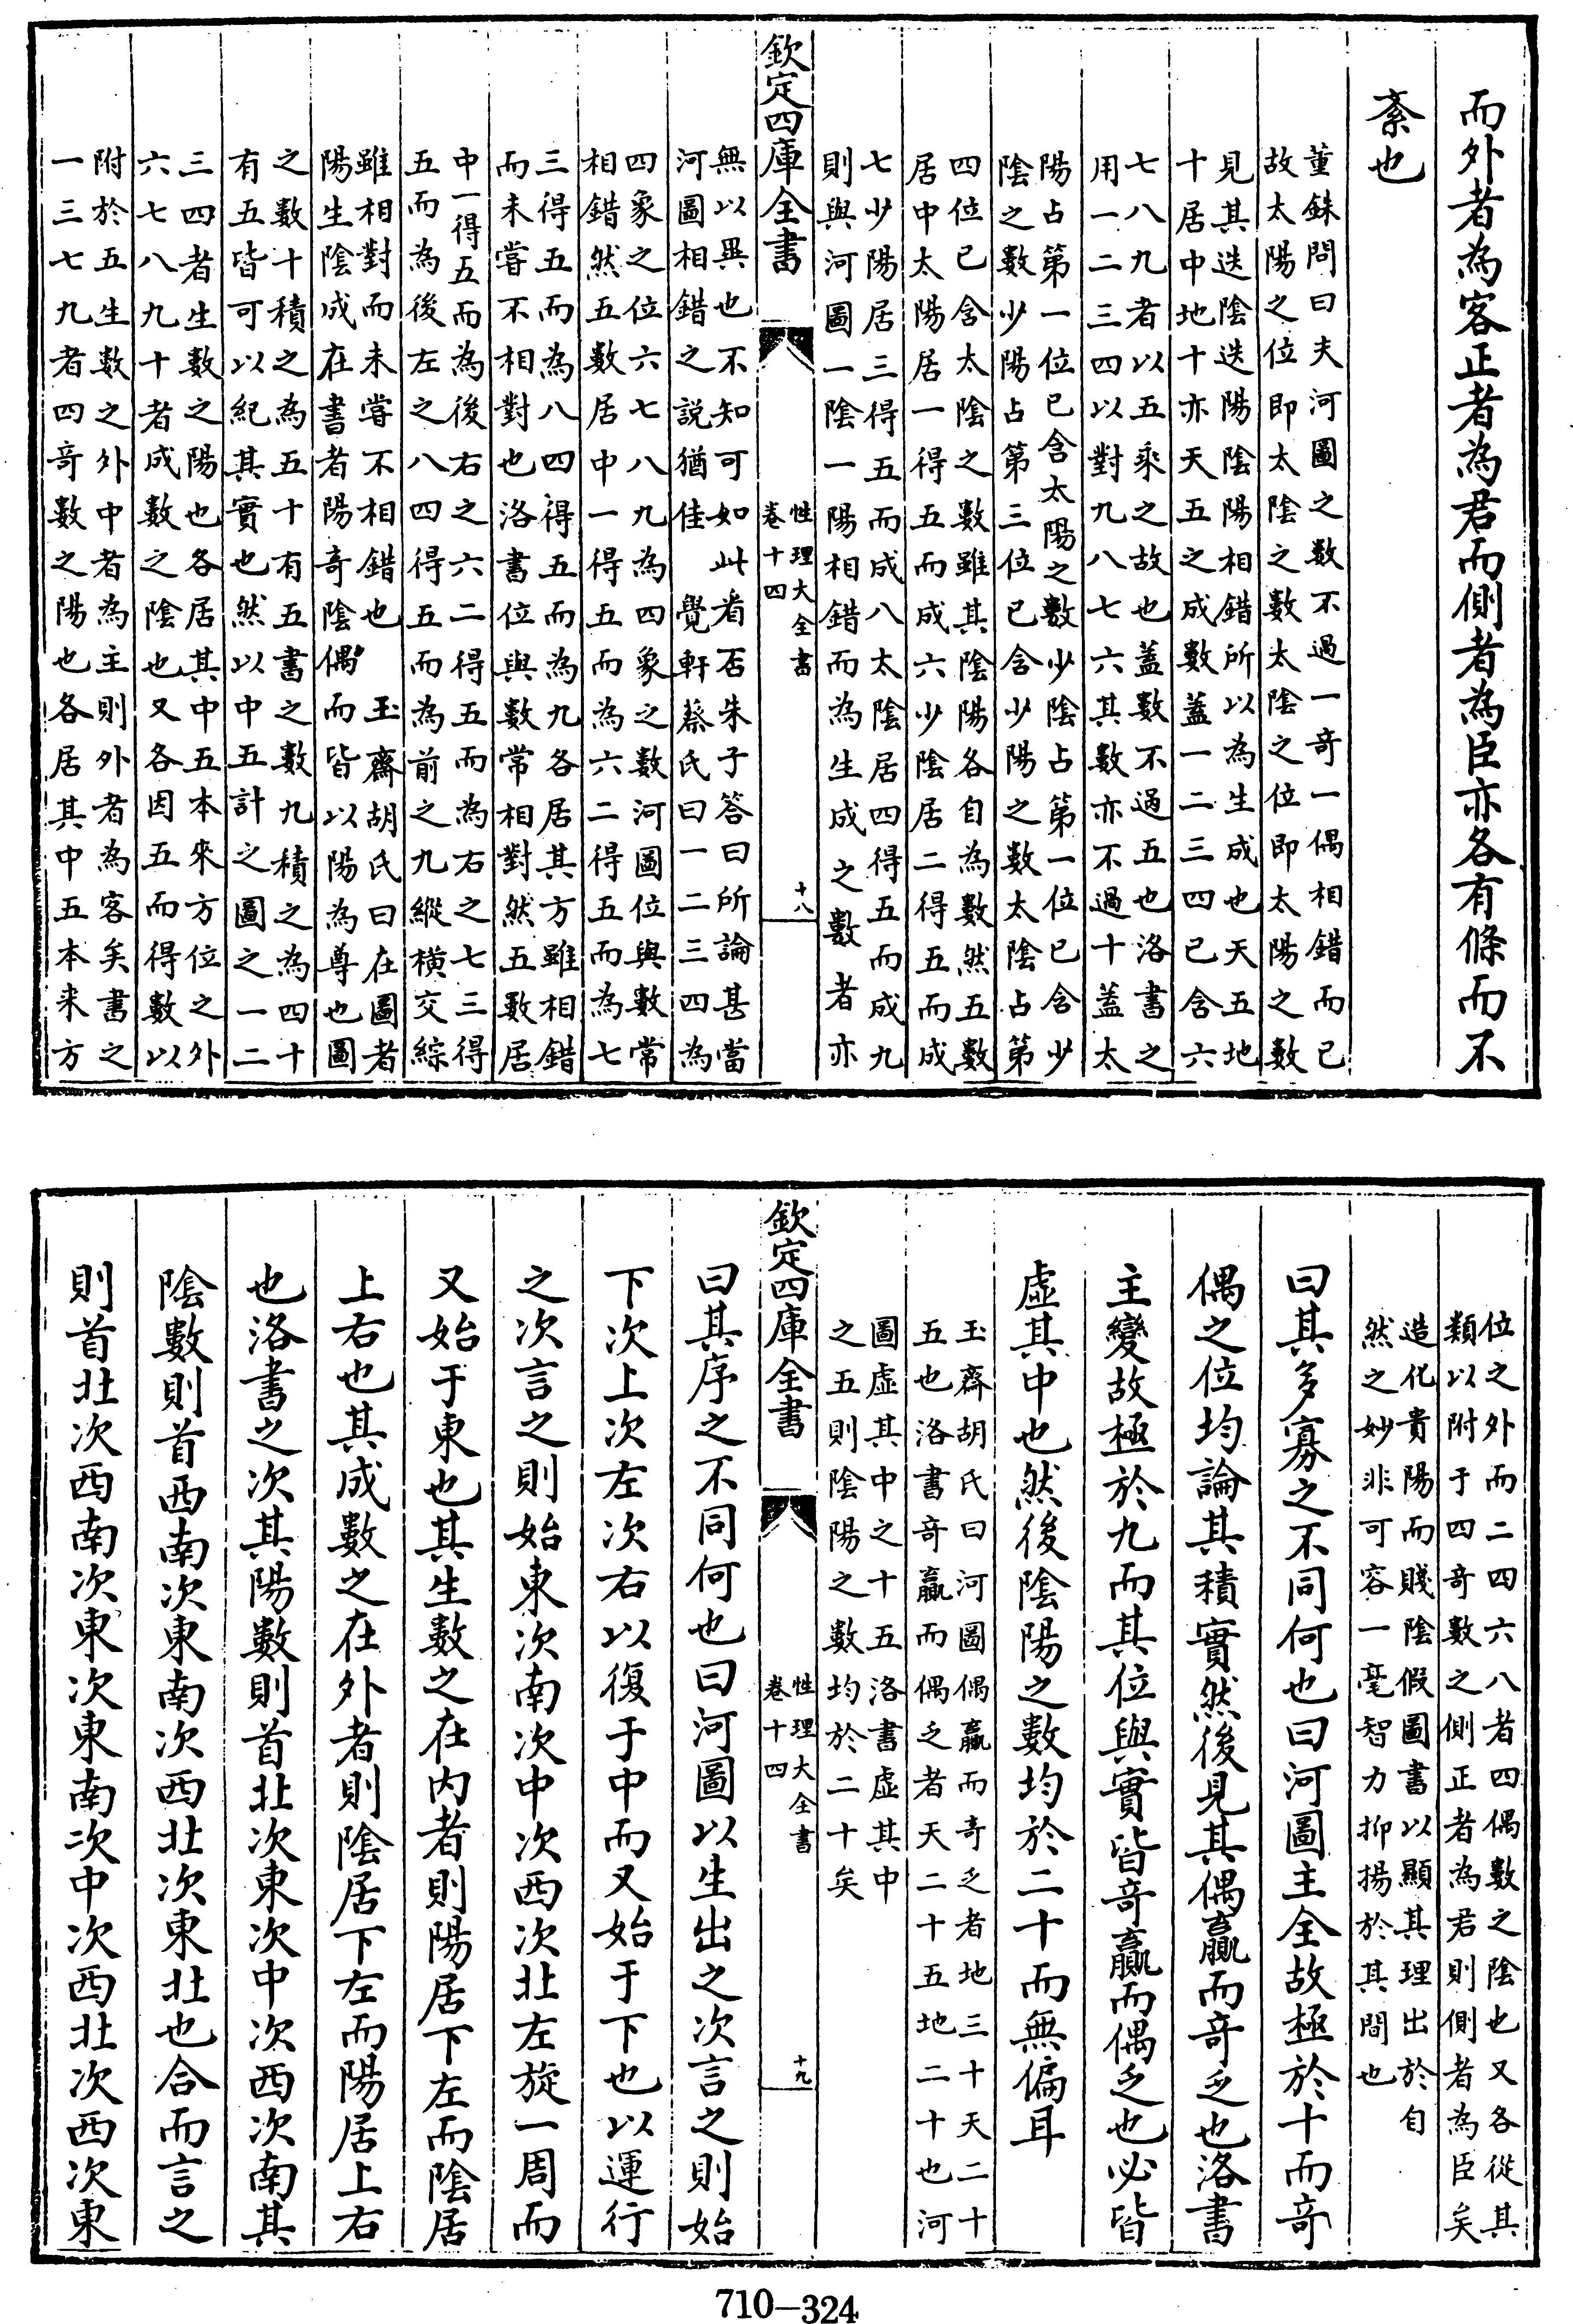 而外者為客正者為君而側者為臣亦各有條而不
紊也
董銖問曰夫河圖之數不過一奇一偶相錯而已
故太陽之位即太陰之數太陰之位即太陽之數
見其迭陰迭陽陰陽相錯所以為生成也天五地
十居中地十亦天五之成數蓋一二三四已含六
七八九者以五乘之故也蓋數不過五也洛書之
用一二三四以對九八七六其數亦不過十蓋太
陽占第一位已含太陽之數少陰占第一位已含少
陰之數少陽占第三位已含少陽之數太陰占第
四位已含太陰之數雖其陰陽各自為數然五數
居中太陽居一得五而成六少陰居二得五而成
七少陽居三得五而成八太陰居四得五而成九
則與河圖一陰一陽相錯而為生成之數者亦
欽定四庫全書
性理大全書
卷十四
十八
無以異也不知可如此看否朱子答曰所論甚當
河圖相錯之說猶佳 覺軒蔡氏曰一二三四為
四象之位六七八九為四象之數河圖位與數常
相錯然五數居中一得五而為六二得五而為七
三得五而為八四得五而為九各居其方雖相錯
而未嘗不相對也洛書位與數常相對然五數居
中一得五而為後右之六二得五而為右之七三得
五而為後左之八四得五而為前之九縱橫交綜
雖相對而未嘗不相錯也 玉齋胡氏曰在圖者
陽生陰成在書者陽奇陰偶而皆以陽為尊也圖
之數十積之為五十有五書之數九積之為四十
有五皆可以紀其實也然以中五計之圖之一二
三四者生數之陽也各居其中五本來方位之外
六七八九十者成數之陰也又各因五而得數以
附於五生數之外中者為主則外者為客矣書之
一三七九者四奇數之陽也各居其中五本来方
位之外而二四六八者四偶數之陰也又各從其
類以附于四奇數之側正者為君則側者為臣矣
造化貴陽而賤陰假圖書以顯其理出於自
然之妙非可容一毫智力抑揚於其間也
曰其多寡之不同何也曰河圖主全故極於十而奇
偶之位均論其積實然後見其偶贏而奇乏也洛書
主變故極於九而其位與實皆奇贏而偶乏也必皆
虛其中也然後陰陽之數均於二十而無偏耳
玉齋胡氏曰河圖偶贏而奇乏者地三十天二十
五也洛書奇贏而偶乏者天二十五地二十也河
圖虛其中之十五洛書虛其中
之五則陰陽之數均於二十矣
欽定四庫全書
性理大全書
卷十四
十九
曰其序之不同何也曰河圖以生出之次言之則始
下次上次左次右以復于中而又始于下也以運行
之次言之則始東次南次中次西次北左旋一周而
又始于東也其生數之在內者則陽居下左而陰居
上右也其成數之在外者則陰居下左而陽居上右
也洛書之次其陽數則首北次東次中次西次南其
陰數則首西南次東南次西北次東北也合而言之
則首北次西南次東次東南次中次西北次西次東
710—324